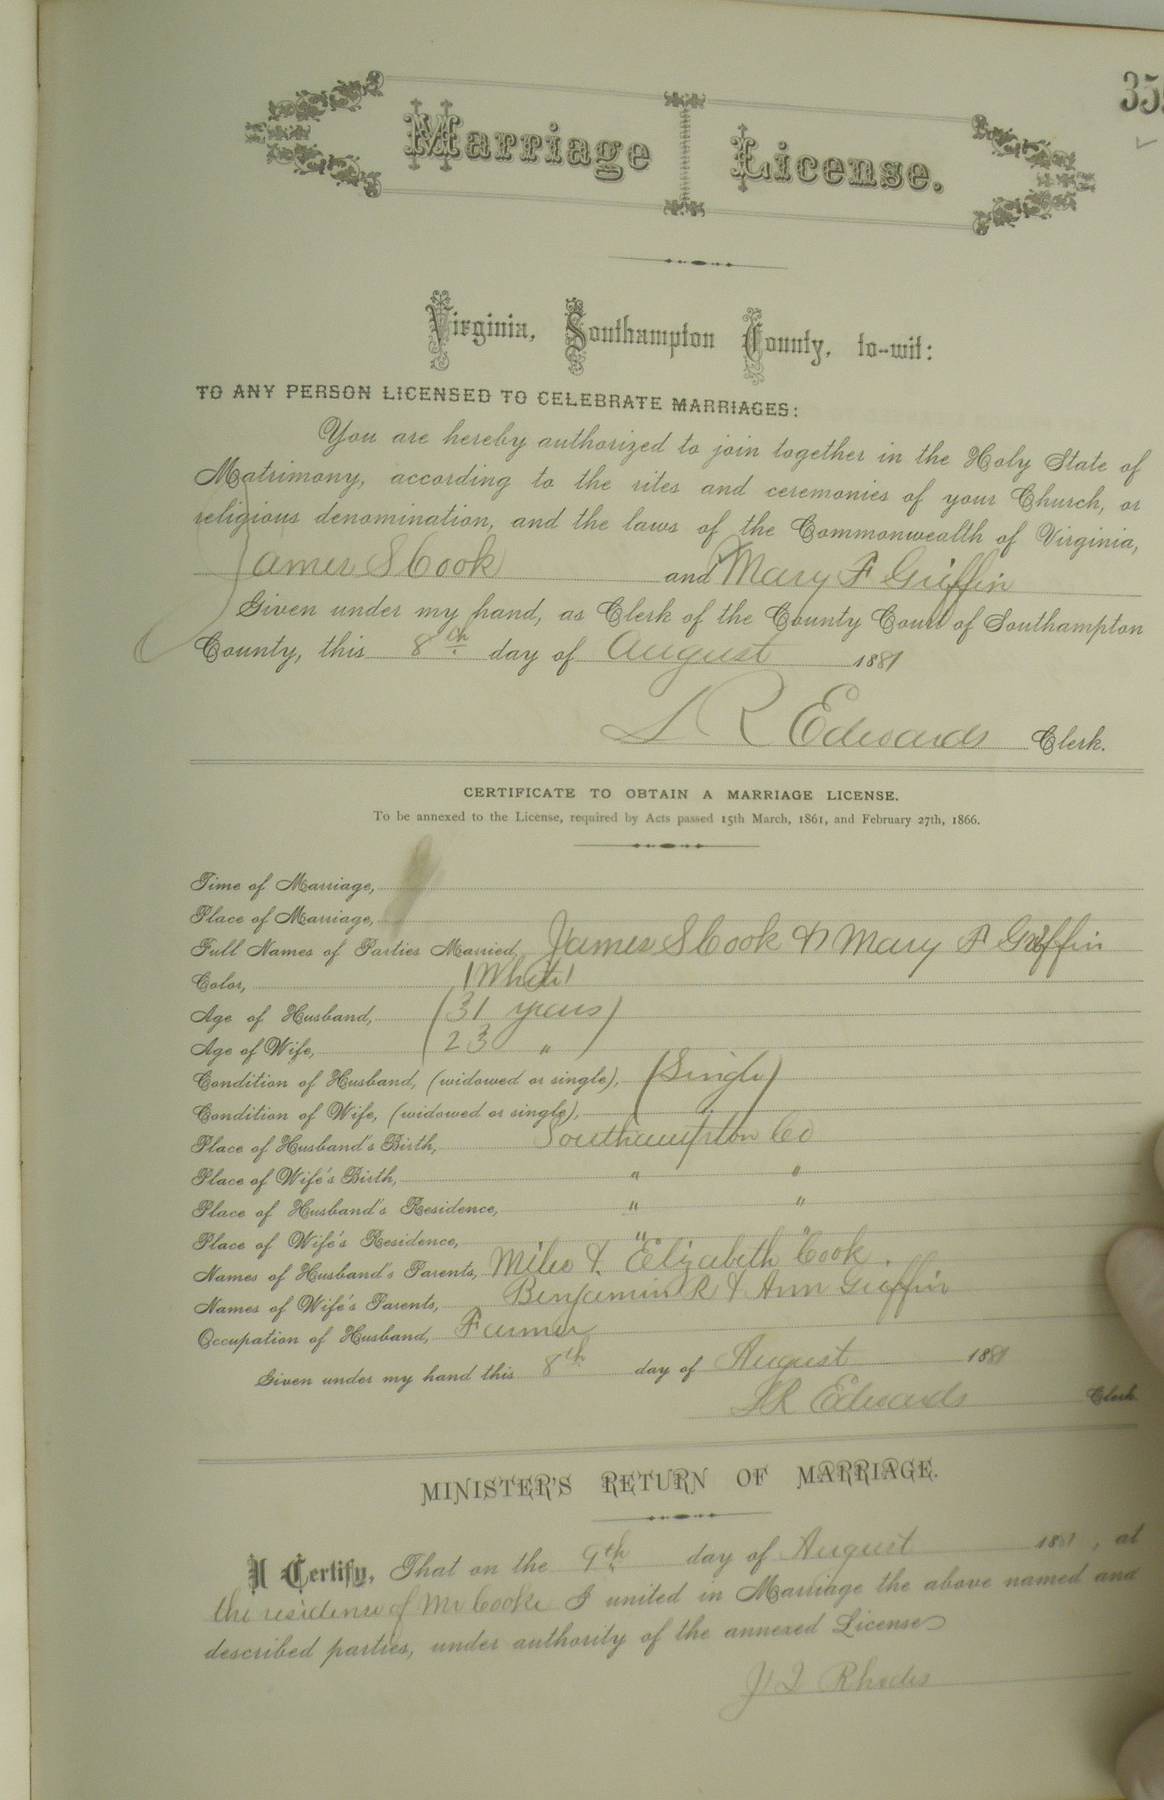 35
Marriage License.
Virginia, Southampton County, to-wit:
TO ANY PERSON LICENSED TO CELEBRATE MARRIAGES:
You are hereby authorized to join together in the Holy State of
Matrimony, according to the rites and ceremonies of your Church, or
religious denomination, and the laws of the Commonwealth of Virginia,
James S Cook and Mary F Griffin
Given under my hand, as Clerk of the County Court of Southampton
County, this 8th day of August 1881
L R Edwards Clerk.
CERTIFICATE TO OBTAIN A MARRIAGE LICENSE.
To be annexed to the License, required by Acts passed 15th March, 1861, and February 27th, 1866.
Time of Marriage,
Place of Marriage,
Full Names of Parties Married, James S Cook & Mary F Griffin
Color, (White)
Age of Husband, (31 years)
Age of Wife, 23 "
Condition of Husband, (widowed or single), (Single)
Condition of Wife, (widowed or single),
Place of Husband's Birth, Southampton Co
Place of Wife's Birth, " "
Place of Husband's Residence, " "
Place of Wife's Residence, " "
Names of Husband's Parents, Miles & Elizabeth Cook.
Names of Wife's Parents, Benjamin R & Ann Griffin
Occupation of Husband, Farmer
Given under my hand this 8th day of August 1881
L R Edwards Clerk
MINISTER'S RETURN OF MARRIAGE.
I Certify, That on the 9th day of August 1881, at
the residence of Mr Cooke I united in Marriage the above named and
described parties, under authority of the annexed License
Rhodes